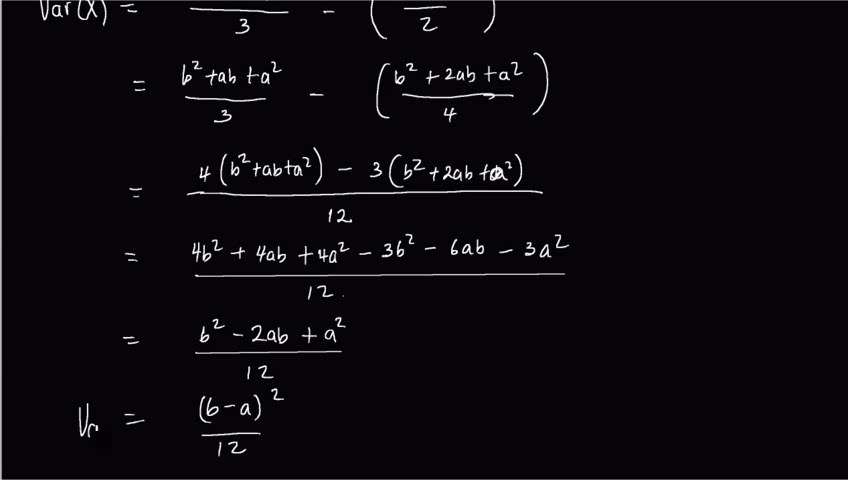 Var(X) = /3 - ( /2 )
= (b² + ab + a²)/3 - ((b² + 2ab + a²)/4)
= (4(b² + ab + a²) - 3(b² + 2ab + a²))/12
= (4b² + 4ab + 4a² - 3b² - 6ab - 3a²)/12
= (b² - 2ab + a²)/12
= (b - a)²/12